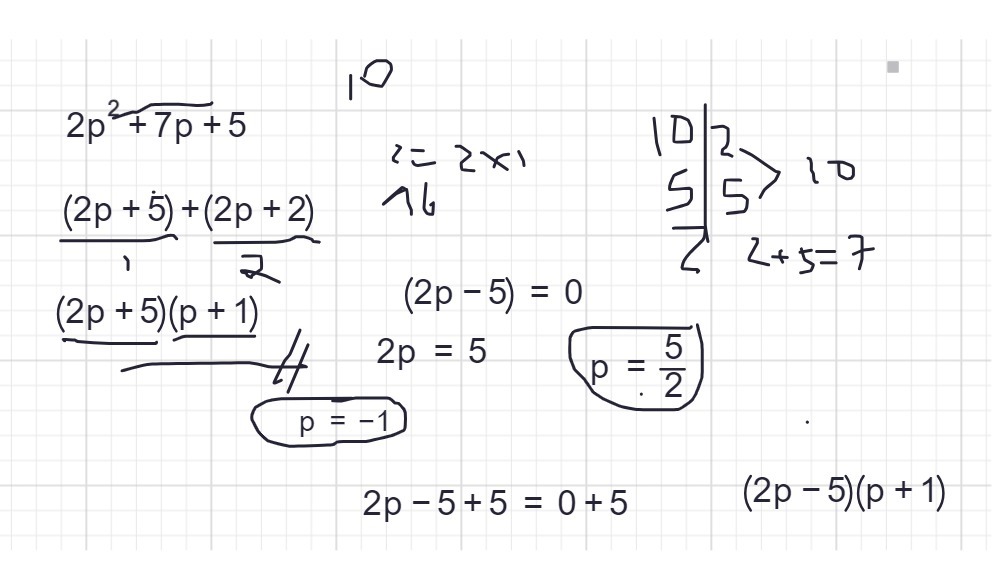 10
2p² + 7p + 5
10 | 2
5 | 5
10
2 = 2 x 1
(2p + 5) + (2p + 2)
1
2
2 + 5 = 7
(2p − 5) = 0
(2p + 5)(p + 1)
2p = 5
p = 5/2
p = −1
2p − 5 + 5 = 0 + 5
(2p − 5)(p + 1)